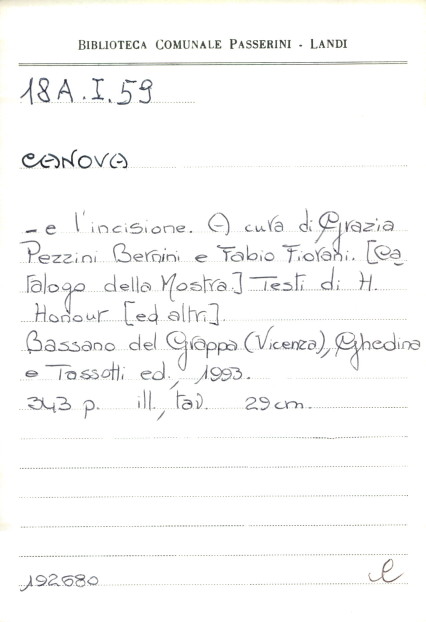 BIBLIOTECA COMUNALE PASSERINI - LANDI
18A.I.59
CANOVA
- e l'incisione. A cura di Grazia
Pezzini Bernini e Fabio Fiorani. [Ca
talogo della Mostra.] Testi di H.
Honour [ed altri].
Bassano del Grappa (Vicenza), Ghedina
e Tassotti ed., 1993.
343 p. ill., tav. 29 cm.
192680